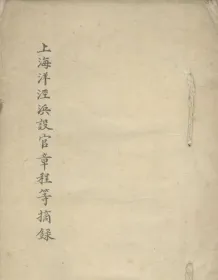 上海洋涇浜設官章程等摘錄